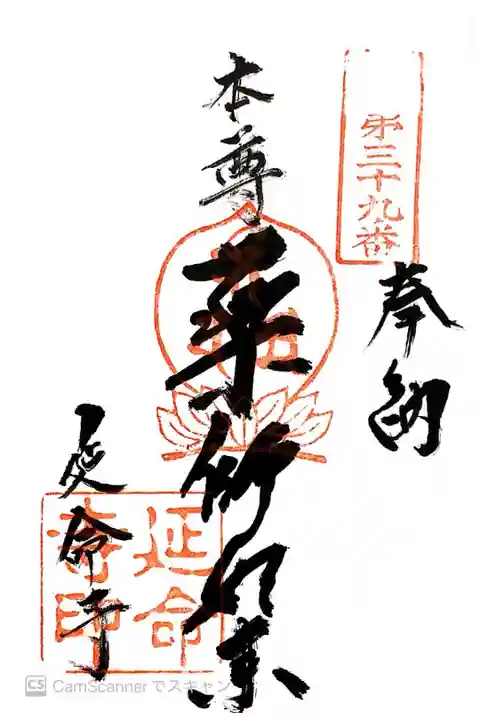 第三十九番
奉納
本尊
薬師如来
延命寺
延命
寺印
CamScannerでスキャン